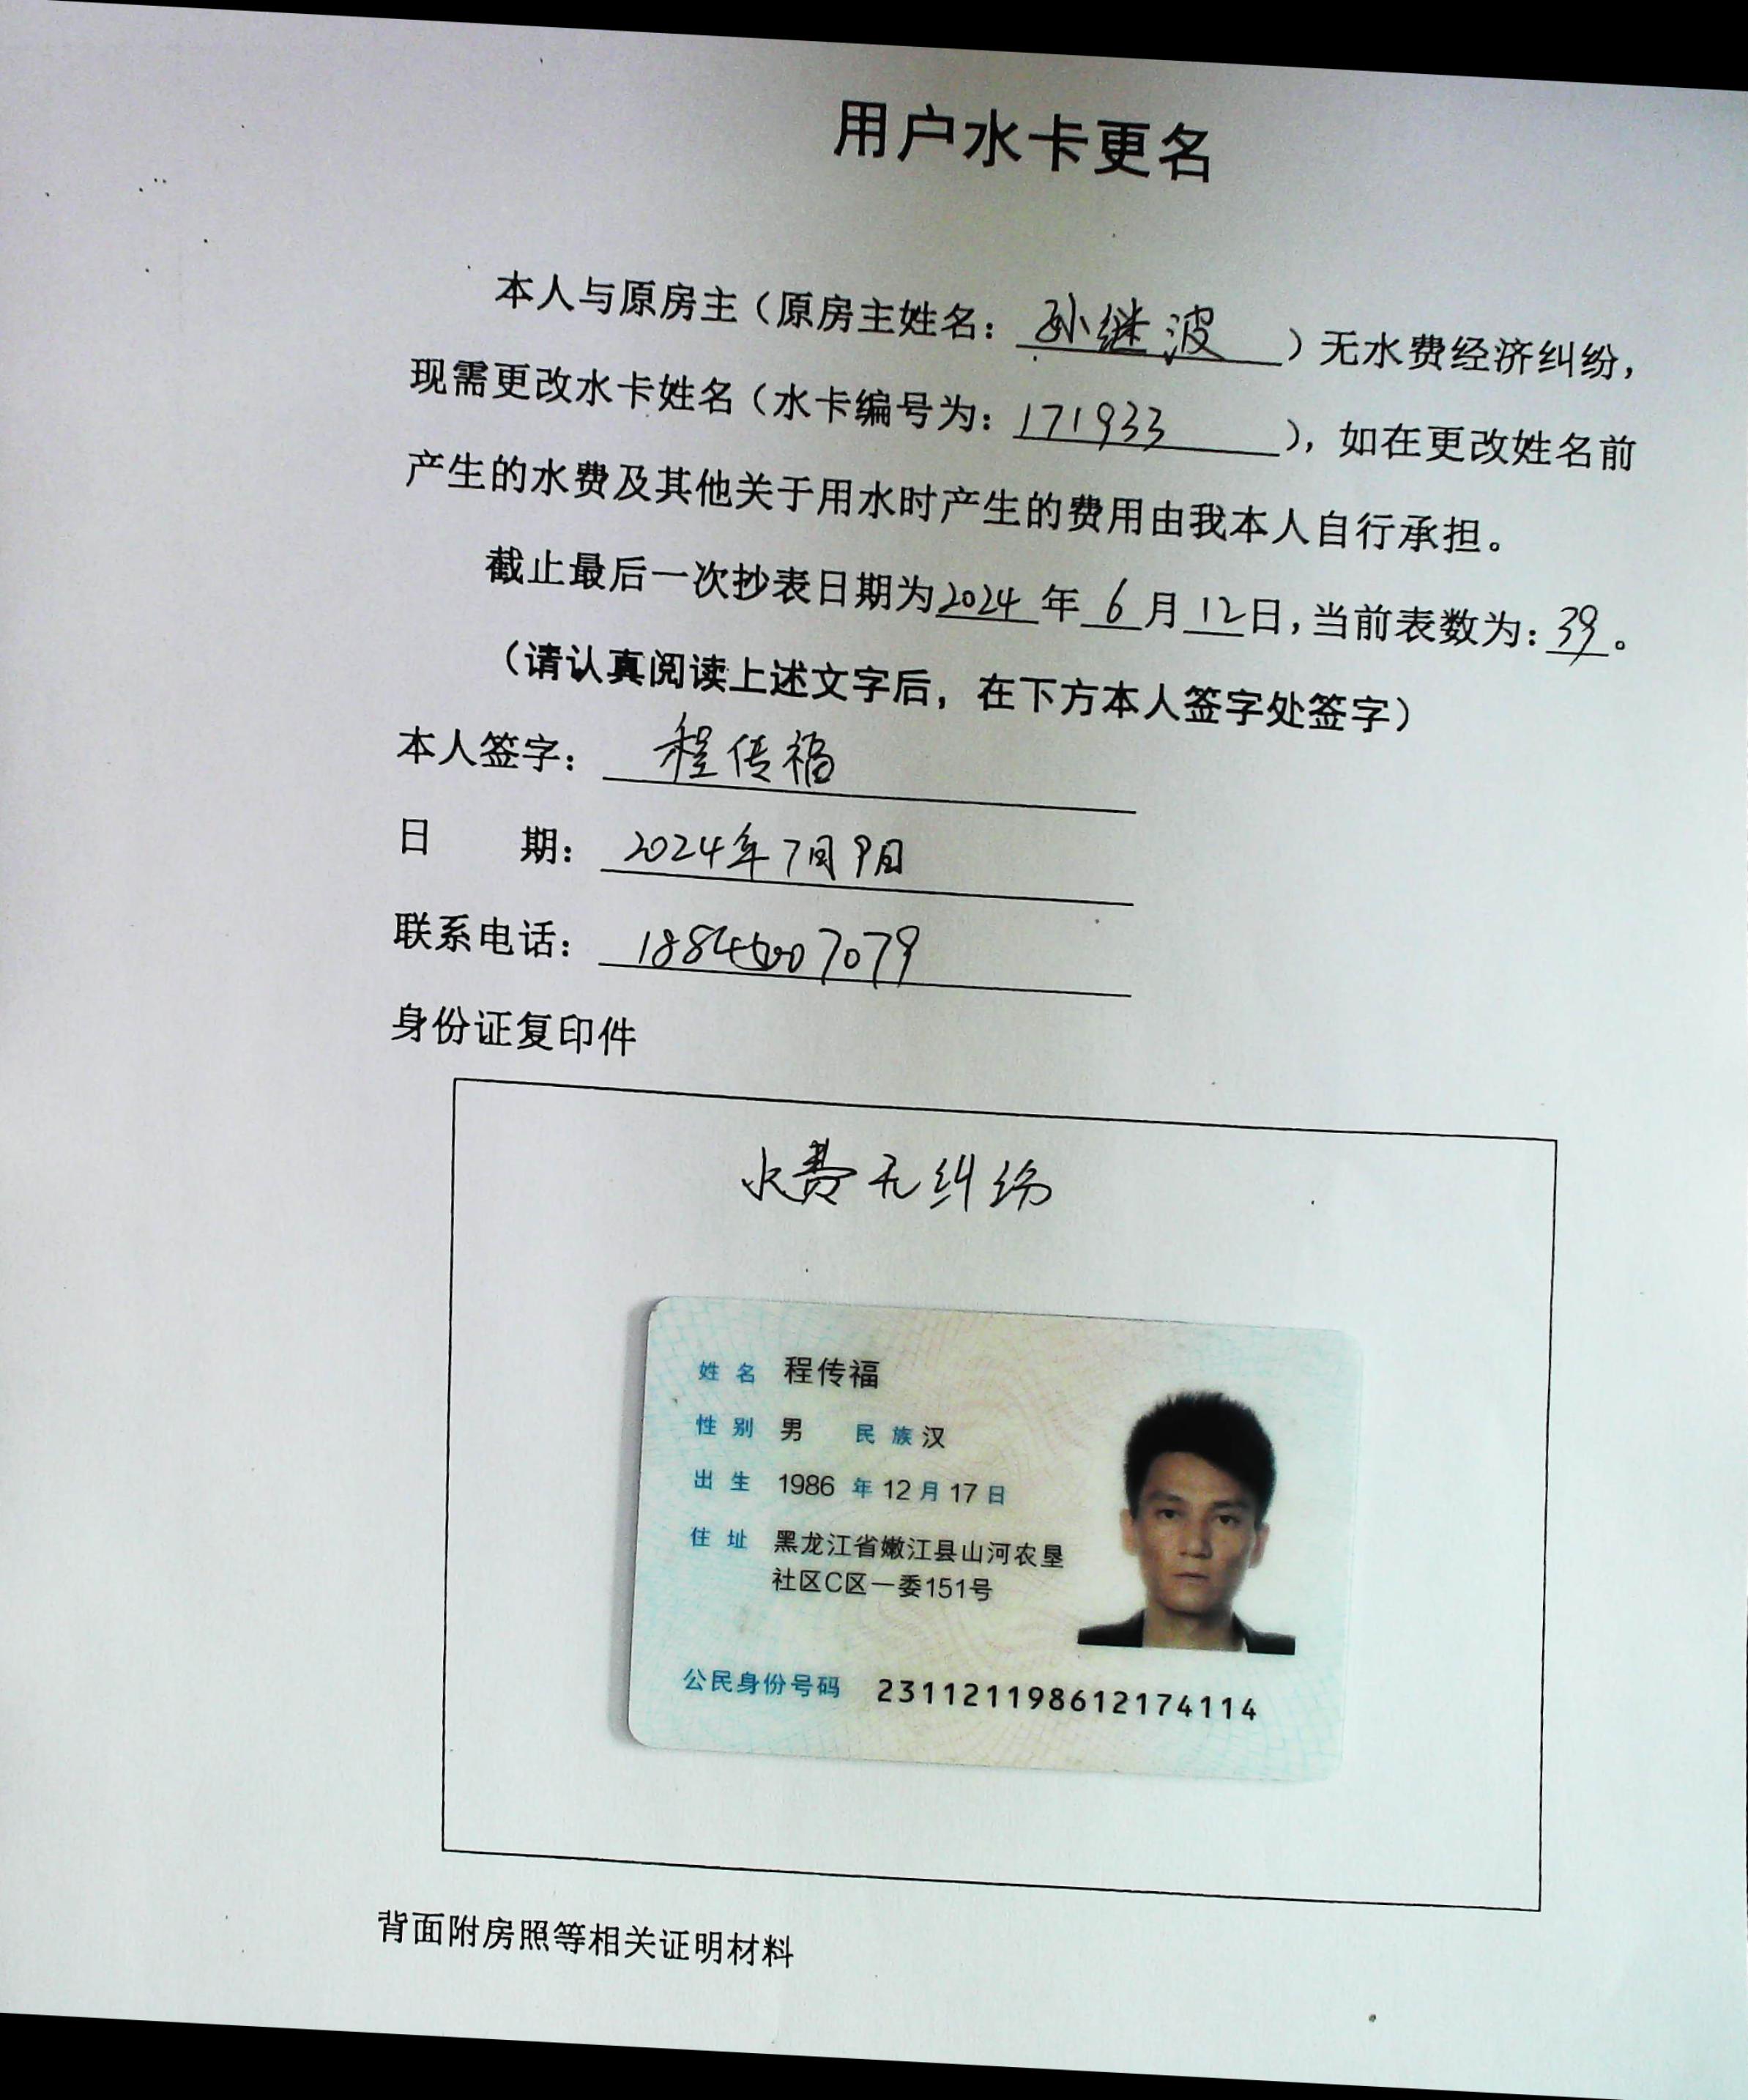 用户水卡更名
本人与原房主（原房主姓名：孙继波）无水费经济纠纷，
现需更改水卡姓名（水卡编号为：171933），如在更改姓名前
产生的水费及其他关于用水时产生的费用由我本人自行承担。
截止最后一次抄表日期为2024年6月12日，当前表数为：39。
（请认真阅读上述文字后，在下方本人签字处签字）
本人签字：程传福
日 期：2024年7月9日
联系电话：
身份证复印件
水费无纠纷
姓名 程传福
性别 男 民族 汉
出生 1986 年 12 月 17 日
住址 黑龙江省嫩江县山河农垦
社区C区一委151号
公民身份号码 231121198612174114
背面附房照等相关证明材料